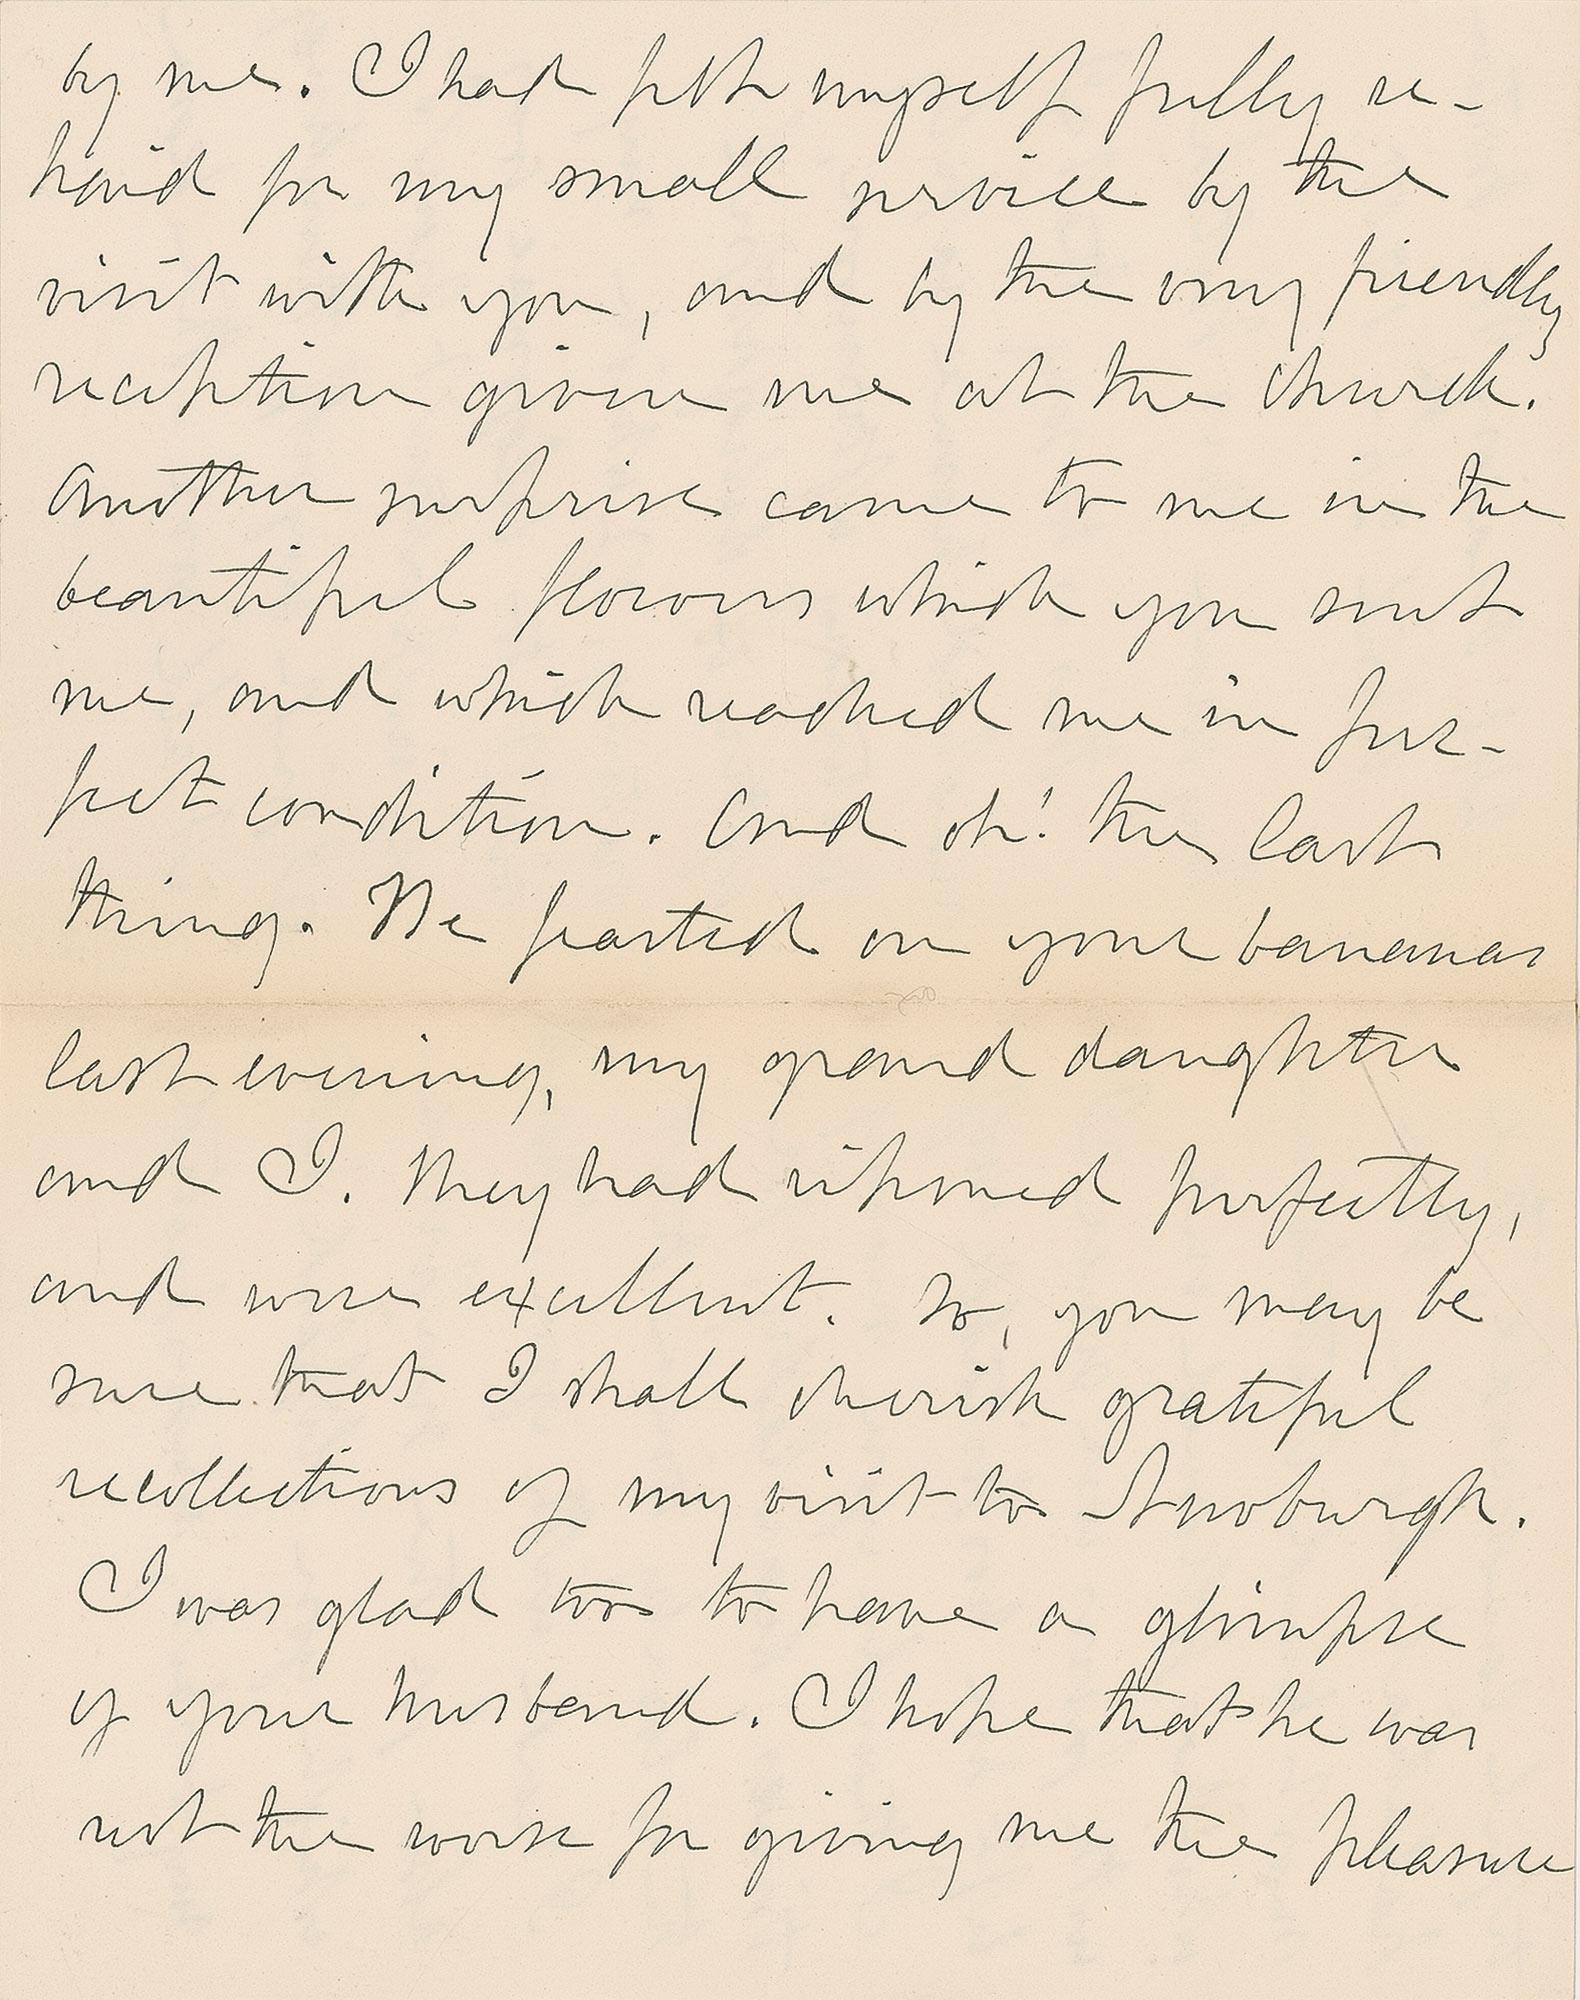 by me. I had felt myself fully re-
paid for my small service by the
visit with you, and by the very friendly
reception given me at the church.
Another surprise came to me in the
beautiful flowers which you sent
me, and which reached me in per-
fect condition. And oh! the last
thing. We feasted on your bananas
last evening, my grand daughter
and I. They had ripened perfectly,
and were excellent. So, you may be
sure that I shall cherish grateful
recollections of my visit to Newburgh.
I was glad too to have a glimpse
of your husband. I hope that he was
not the worse for giving me the pleasure